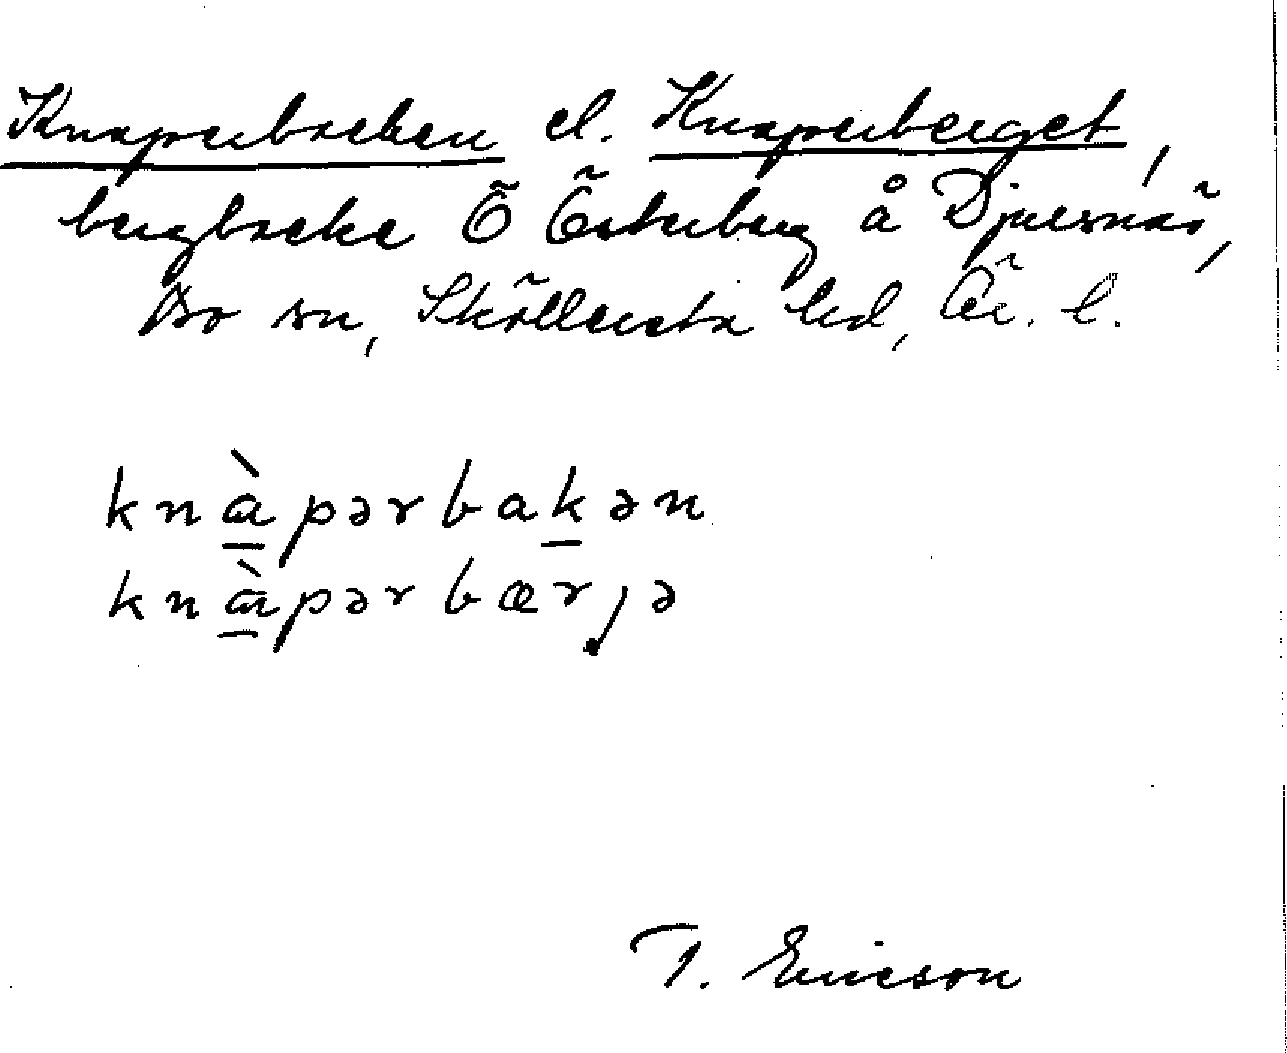 Knaperbacken el. Knaperberget,
bergbacke Ö Österberg å Djursnäs,
Bo sn, Sköllersta hd, Ör. l.
knàpərbakən
knàpərbærjə
T. Ericson